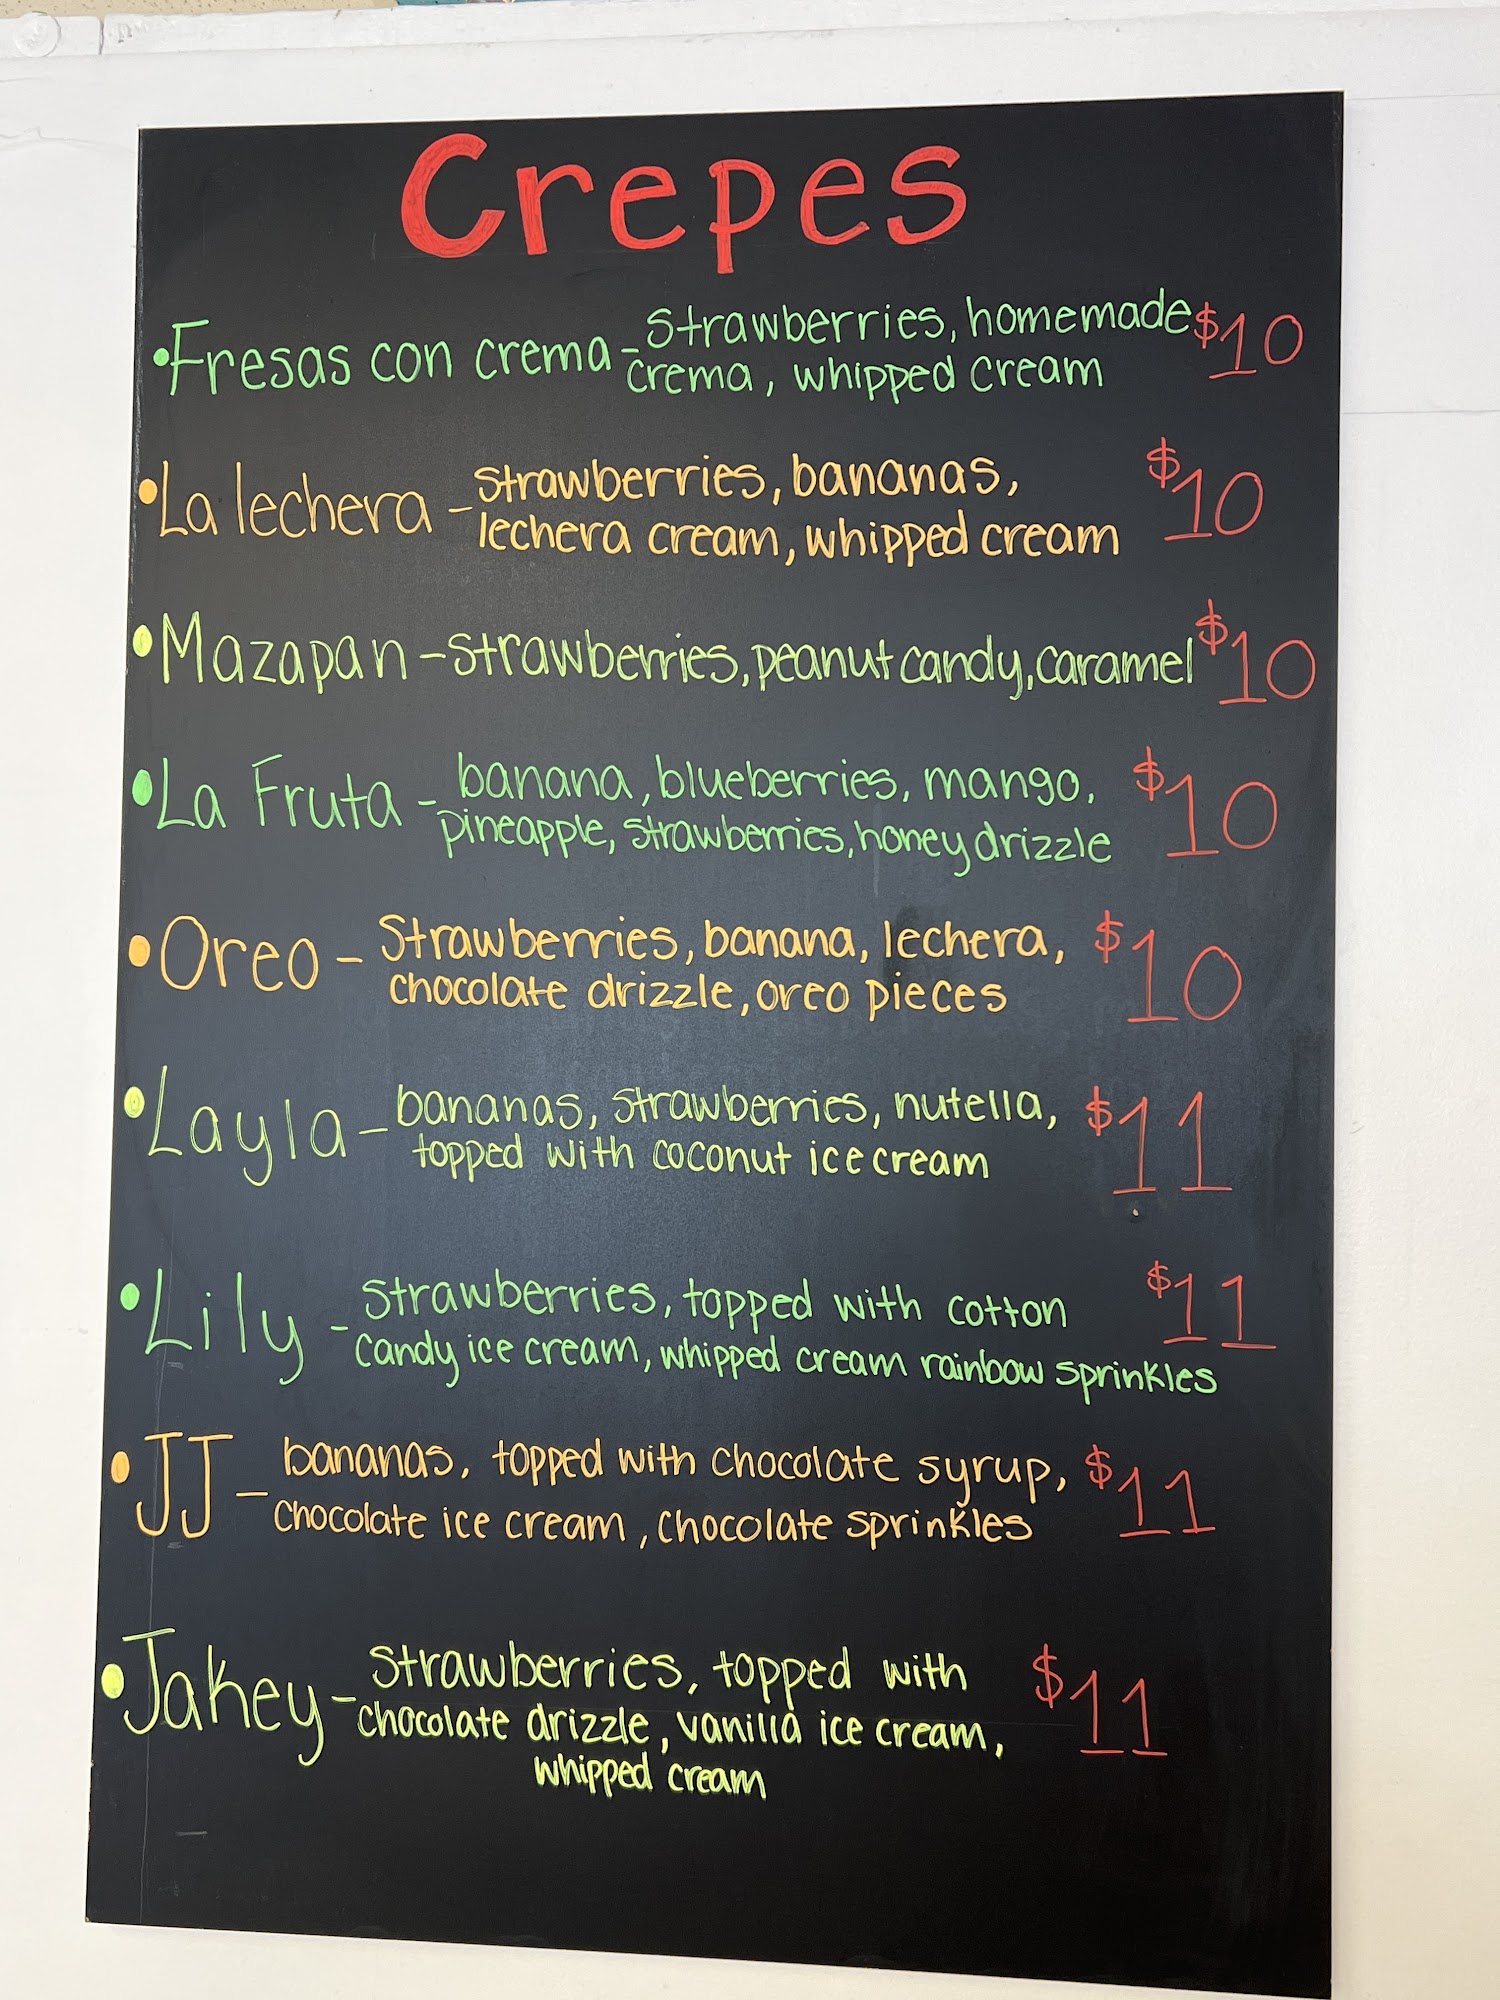 Crepes
•Fresas con crema - Strawberries, homemade $10
crema, whipped cream
•La lechera - strawberries, bananas, $10
lechera cream, whipped cream
•Mazapan - strawberries, peanut candy, caramel $10
•La Fruta - banana, blueberries, mango, $10
pineapple, strawberries, honey drizzle
•Oreo - Strawberries, banana, lechera, $10
chocolate drizzle, oreo pieces
•Layla - bananas, strawberries, nutella, $11
topped with coconut ice cream
•Lily - strawberries, topped with cotton $11
candy ice cream, whipped cream rainbow sprinkles
•JJ - bananas, topped with chocolate syrup, $11
chocolate ice cream, chocolate sprinkles
•Jakey - strawberries, topped with $11
chocolate drizzle, vanilla ice cream,
whipped cream